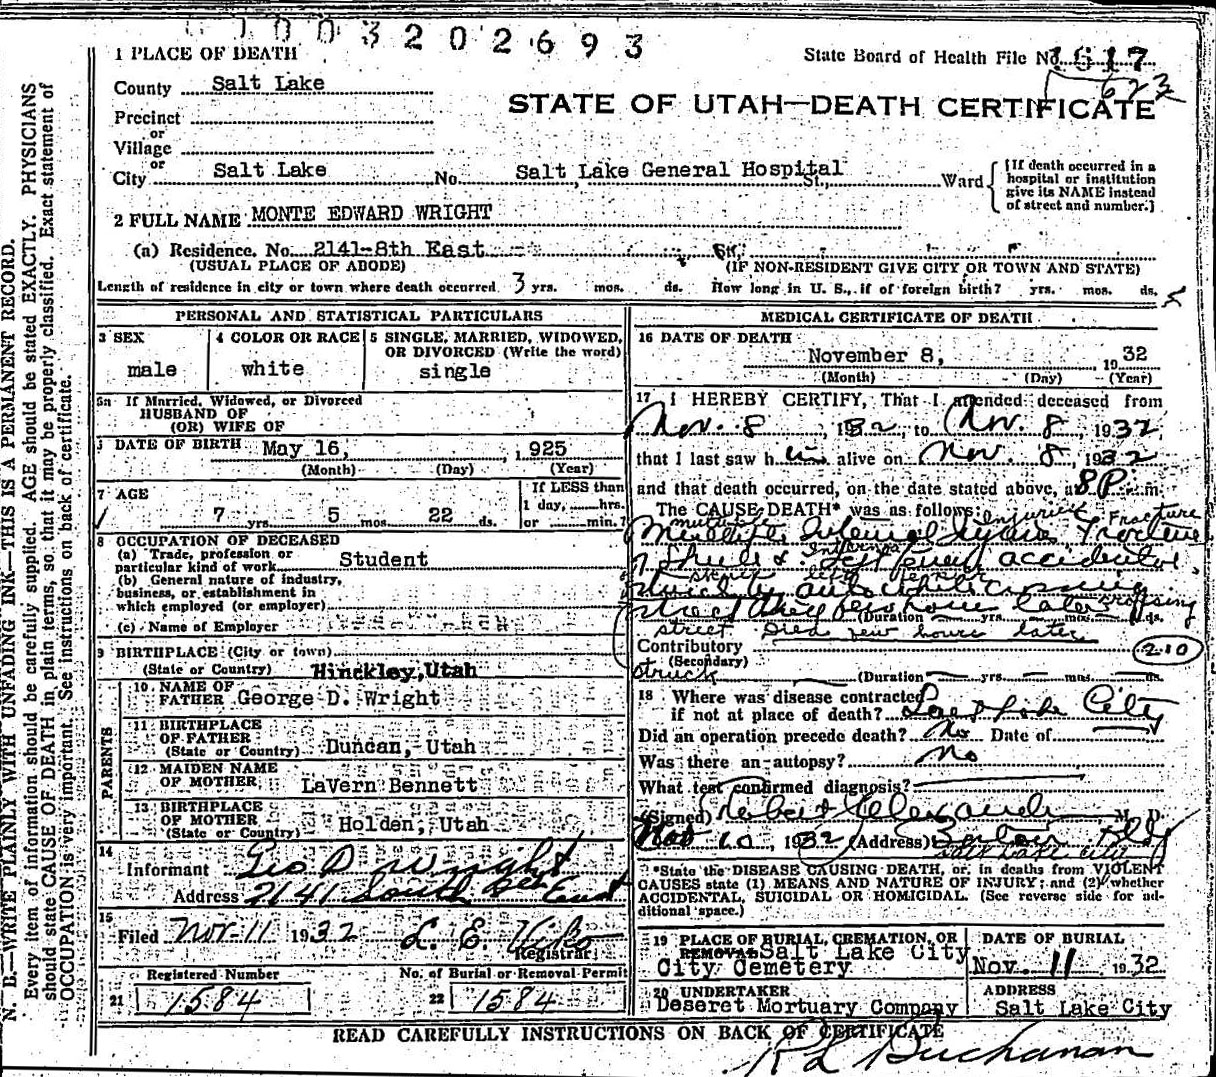 1003202693
1 PLACE OF DEATH
State Board of Health File No. 1617
623
County Salt Lake
STATE OF UTAH—DEATH CERTIFICATE
Precinct
or
Village
or
City Salt Lake No. Salt Lake General Hospital St., Ward {[If death occurred in a hospital or institution give its NAME instead of street and number.]
2 FULL NAME MONTE EDWARD WRIGHT
(a) Residence. No. 2141-8th East St.,
(USUAL PLACE OF ABODE) (IF NON-RESIDENT GIVE CITY OR TOWN AND STATE)
Length of residence in city or town where death occurred 3 yrs. mos. ds. How long in U. S., if of foreign birth? yrs. mos. ds.
PERSONAL AND STATISTICAL PARTICULARS
3 SEX
male
4 COLOR OR RACE
white
5 SINGLE, MARRIED, WIDOWED,
OR DIVORCED (Write the word)
single
5a If Married, Widowed, or Divorced
HUSBAND OF
(OR) WIFE OF
DATE OF BIRTH May 16, 1925
(Month) (Day) (Year)
7 AGE
7 yrs. 5 mos. 22 ds.
If LESS than
1 day, ......hrs.
or ......min.?
8 OCCUPATION OF DECEASED
(a) Trade, profession or
particular kind of work Student
(b) General nature of industry,
business, or establishment in
which employed (or employer)
(c) Name of Employer
9 BIRTHPLACE (City or town)
(State or Country) Hinckley, Utah
PARENTS
10 NAME OF
FATHER George D. Wright
11 BIRTHPLACE
OF FATHER
(State or Country) Duncan, Utah
12 MAIDEN NAME
OF MOTHER LaVern Bennett
13 BIRTHPLACE
OF MOTHER
(State or Country) Holden, Utah
14
Informant Geo D Wright
Address 2141 South 8th East
15
Filed Nov-11 1932 L. E. Viko
Registrar
Registered Number
21 1584
No. of Burial or Removal Permit
22 1584
MEDICAL CERTIFICATE OF DEATH
16 DATE OF DEATH
November 8, 1932
(Month) (Day) (Year)
17 I HEREBY CERTIFY, That I attended deceased from
Nov. 8, 1932, to Nov. 8, 1932
that I last saw him alive on Nov. 8, 1932
and that death occurred, on the date stated above, at 8 P. m.
The CAUSE DEATH* was as follows:
multiple internal injuries Fracture
skull left femur accidental
struck auto while crossing
street died few hours later
(Duration yrs. mos. ds.
Contributory
(Secondary)
210
struck
(Duration yrs. mos. ds.
18 Where was disease contracted
if not at place of death? Salt Lake City
Did an operation precede death? No Date of
Was there an autopsy? No
What test confirmed diagnosis?
(Signed) Robert Alexander M. D.
Nov 10, 1932 (Address) Boston Bldg
Salt Lake City
*State the DISEASE CAUSING DEATH, or, in deaths from VIOLENT
CAUSES state (1) MEANS AND NATURE OF INJURY; and (2) whether
ACCIDENTAL, SUICIDAL OR HOMICIDAL. (See reverse side for ad-
ditional space.)
19 PLACE OF BURIAL, CREMATION, OR
REMOVAL Salt Lake City
City Cemetery
DATE OF BURIAL
Nov. 11 1932
20 UNDERTAKER
Deseret Mortuary Company
ADDRESS
Salt Lake City
READ CAREFULLY INSTRUCTIONS ON BACK OF CERTIFICATE
R L Buchanan
N. B.—WRITE PLAINLY WITH UNFADING INK—THIS IS A PERMANENT RECORD.
Every item of information should be carefully supplied. AGE should be stated EXACTLY. PHYSICIANS
should state CAUSE OF DEATH in plain terms, so that it may be properly classified. Exact statement of
OCCUPATION is very important. See instructions on back of certificate.